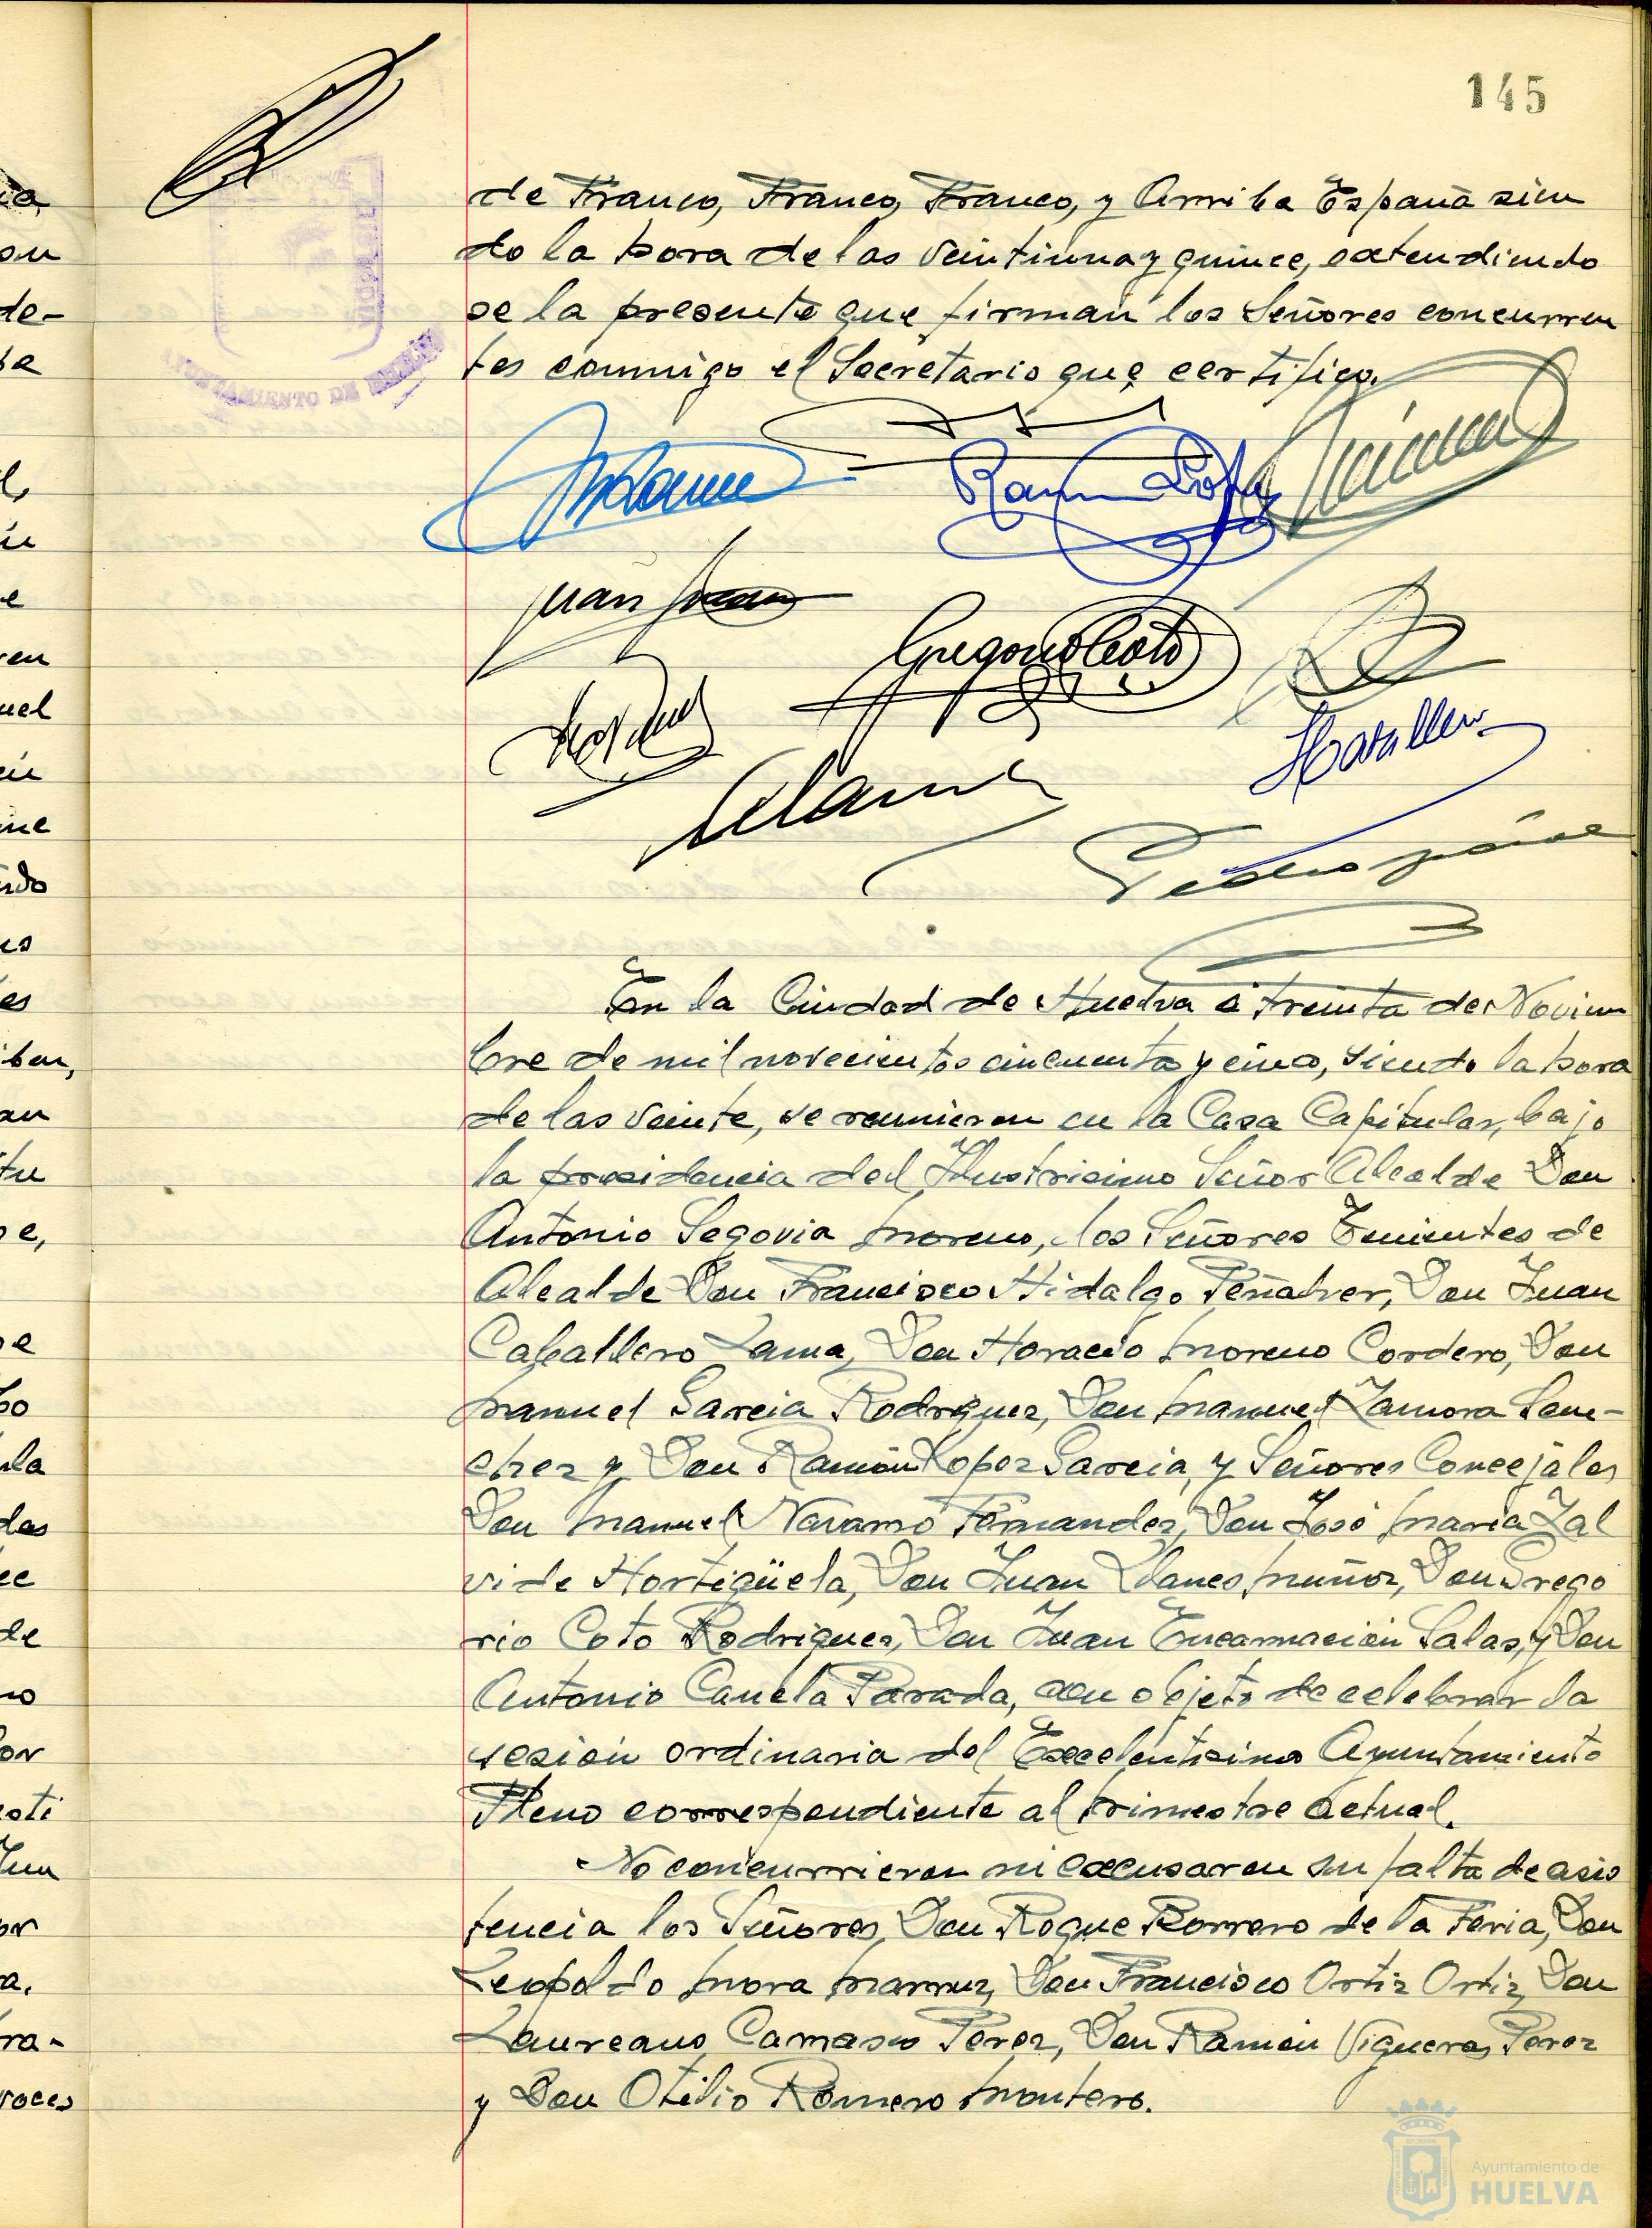 145
de Franco, Franco, Franco, y Arriba España sien
do la hora de las veintiuna y quince, extendiendo
se la presente que firman los Señores concurren
tes conmigo el Secretario que certifico.
AYUNTAMIENTO DE HUELVA
Ramón López
Juan
Gregorio Coto
HCaballero
Llanes
Pedro
En la Ciudad de Huelva a treinta de Noviem
bre de mil novecientos cincuenta y cinco, siendo la hora
de las veinte, se reunieron en la Casa Capitular, bajo
la presidencia del Ilustrisimo Señor Alcalde Don
Antonio Segovia Moreno, los Señores Tenientes de
Alcalde Don Francisco Hidalgo Peñalver, Don Juan
Caballero Lama, Don Horacio Moreno Cordero, Don
Manuel Garcia Rodriguez, Don Manuel Zamora San-
chez y Don Ramón Lopez Garcia, y Señores Concejales
Don Manuel Navarro Fernandez, Don José Maria Zal
vide Hortigüela, Don Juan Llanes Muñoz, Don Grego
rio Coto Rodriguez, Don Juan Encarnación Salas, y Don
Antonio Canela Parada, con objeto de celebrar la
sesión ordinaria del Excelentisimo Ayuntamiento
Pleno correspondiente al trimestre actual.
No concurrieron ni excusaron su falta de asis
tencia los Señores, Don Roque Borrero de la Feria, Don
Leopoldo Mora Marmuz, Don Francisco Ortiz Ortiz, Don
Laureano Camasco Perez, Don Ramón Vigueras Perez
y Don Otilio Romero Montero.
Ayuntamiento de
HUELVA